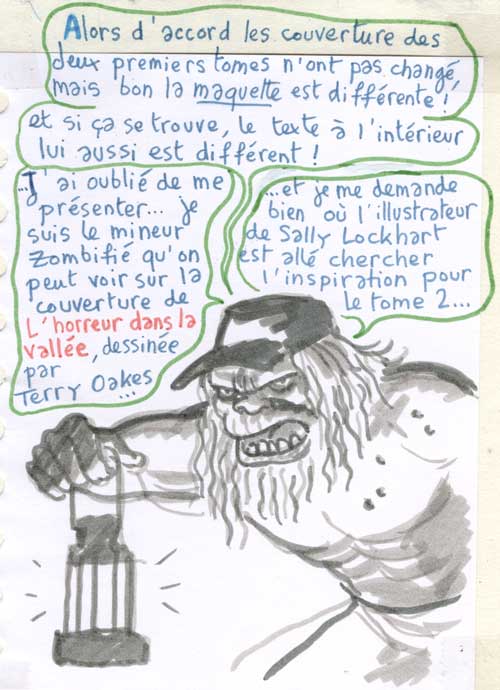 Alors d'accord les couverture des
deux premiers tomes n'ont pas changé,
mais bon la maquette est différente !
et si ça se trouve, le texte à l'intérieur
lui aussi est différent !
...J'ai oublié de me
présenter... je
suis le mineur
zombifié qu'on
peut voir sur la
couverture de
L'horreur dans la
vallée, dessinée
par
Terry Oakes
...
...et je me demande
bien où l'illustrateur
de Sally Lockhart
est allé chercher
l'inspiration pour
le tome 2...